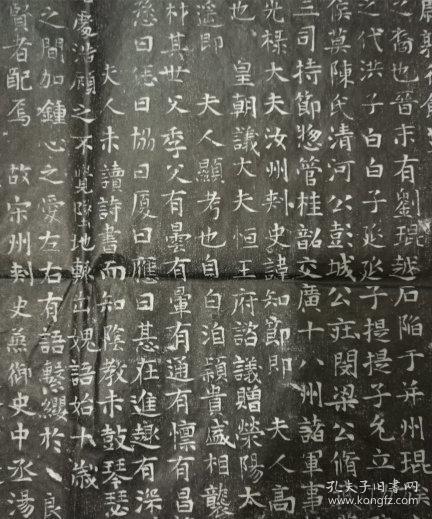 之裔也晉末有劉琨越石陷于并州琨
之代洪子白白子子提提子允立
侯莫陳氏清河公彭城公庄閔梁公脩
三司持節惣管桂韶交廣十八州諸軍事
光祿大夫汝州刺史諱知節即 夫人高
也 皇朝議大夫恒王府諮議贈滎陽太
即 夫人顯考也自白洎頴貴盛相襲
朴其世父季父有曇有暈有通有慓有昌
曰曰協曰厦曰應曰甚在進趣有深
夫人未讀詩書而知陰教未鼓琴瑟
慶浩顧之不覺地輙云媿語始歲
之間加鍾心之愛左右有語繫纓於 良
賢者配焉 故宗州刺史兼御史中丞湯
孔夫子旧书网
www.kongfz.com